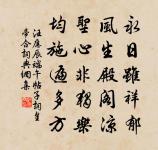 永日雖祥郁
風生殿閣涼
聖心非獨樂
均施遍多方
汪應辰端午帖子詞皇
帝合詞典網集